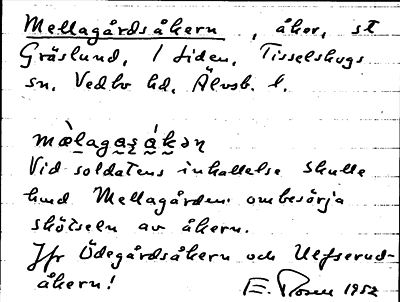 Mellagårdsåkern, åker, st
Gräslund, / Liden, Tisselskogs
sn. Vedbo hd, Älvsb. l.
mὲlagaṣákən
Vid soldatens inkallelse skulle
hmd Mellagården ombesörja
skötseln av åkern.
Jfr Ödegårdsåkern och Ulfserud-
åkern!
E. Rosen 1952